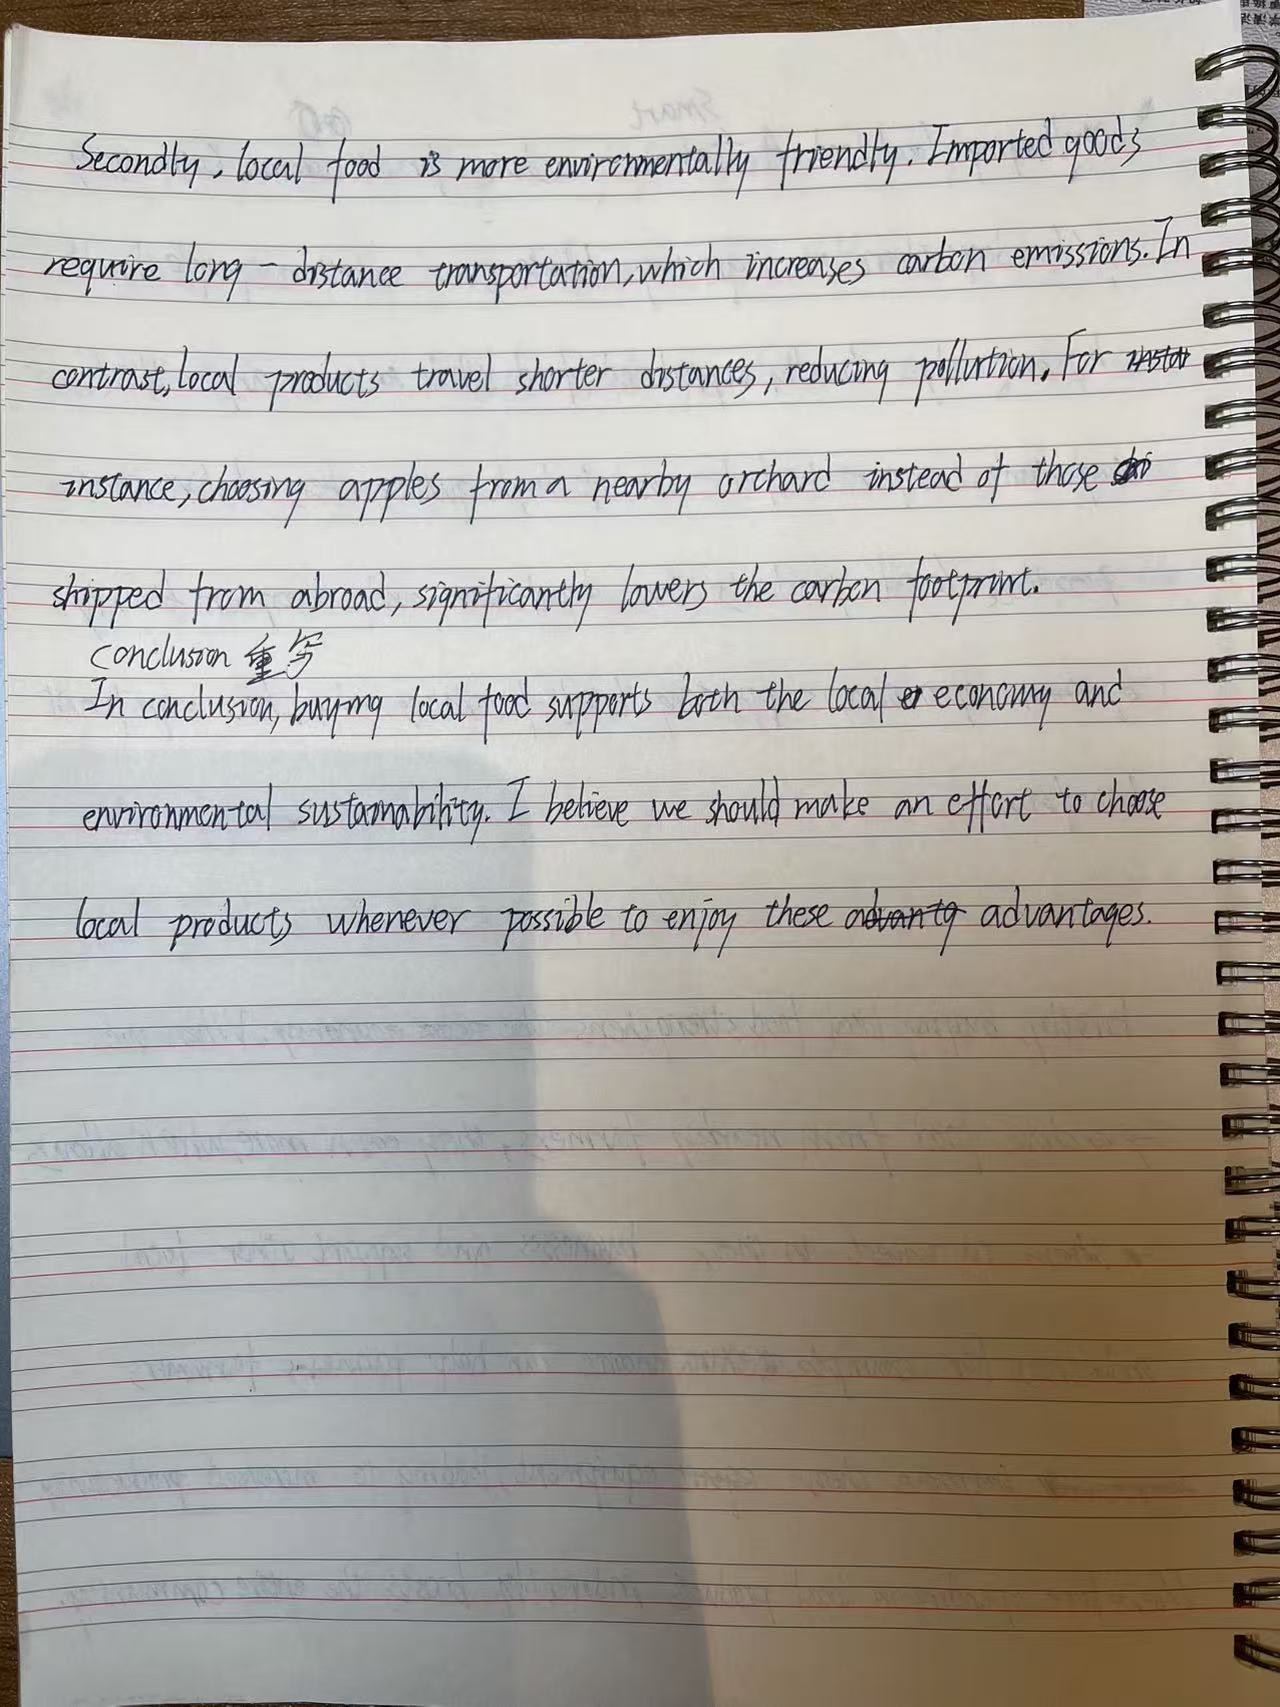 Secondly, local food is more environmentally friendly. Imported goods
require long-distance transportation, which increases carbon emissions. In
contrast, local products travel shorter distances, reducing pollurtion. For instan
instance, choosing apples from a nearby orchard instead of those
shipped from abroad, significantly lowers the carbon footprint.
conclusion 重写
In conclusion, buying local food supports both the local e economy and
environmental sustainability. I believe we should make an effort to choose
local products whenever possible to enjoy these advantg advantages.